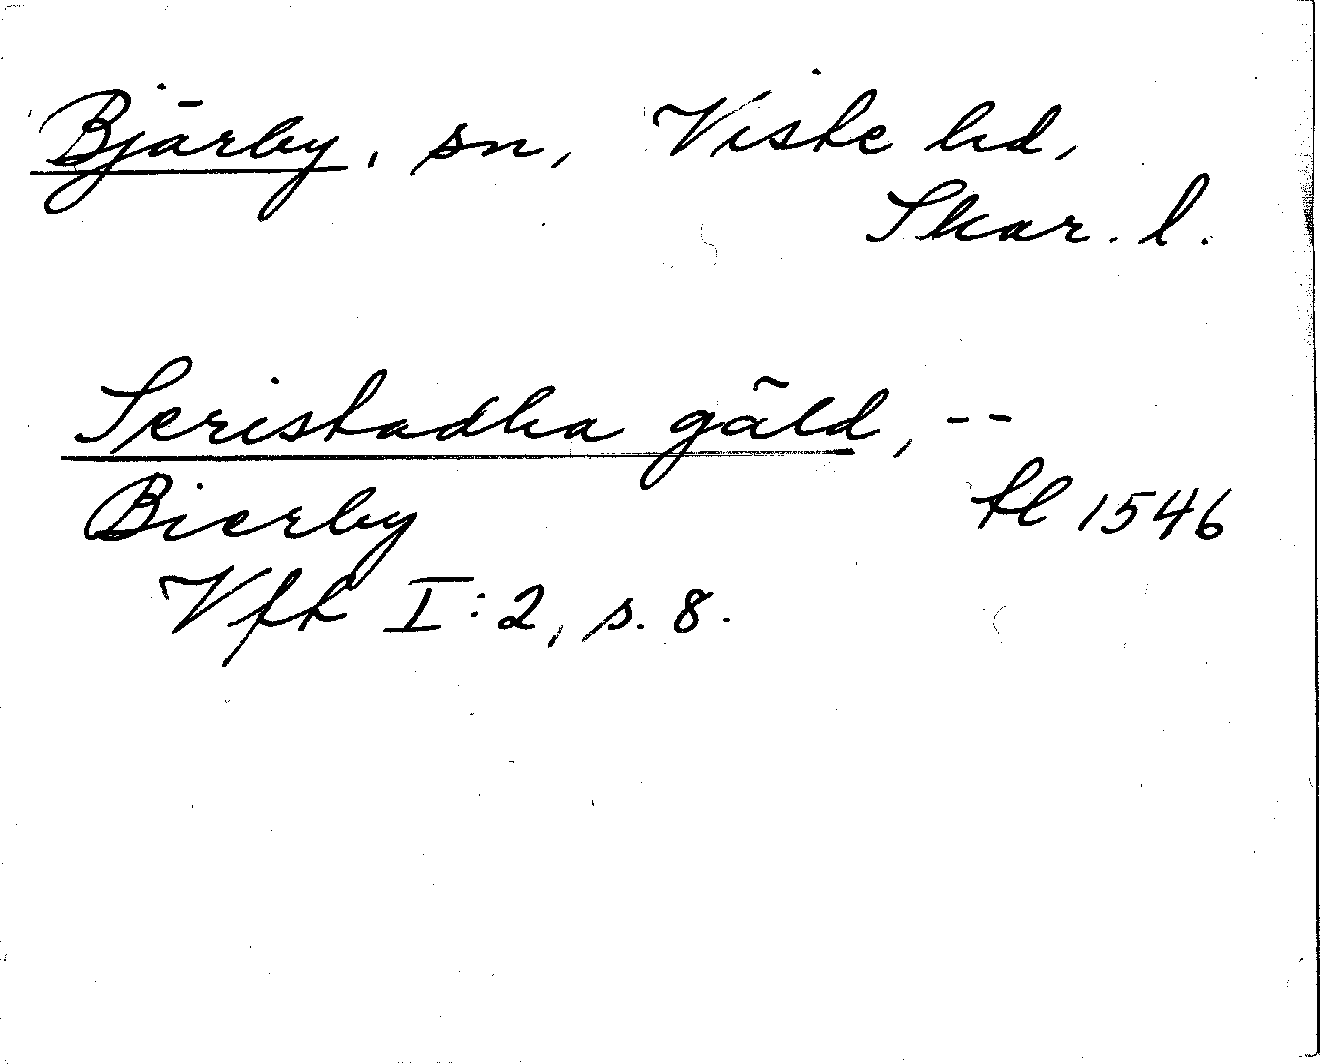 Bjärby, sn, Viste hd,
Skar. l.
Seristadha gäld, --
Bierby fl 1546
Vfk I:2, s. 8.